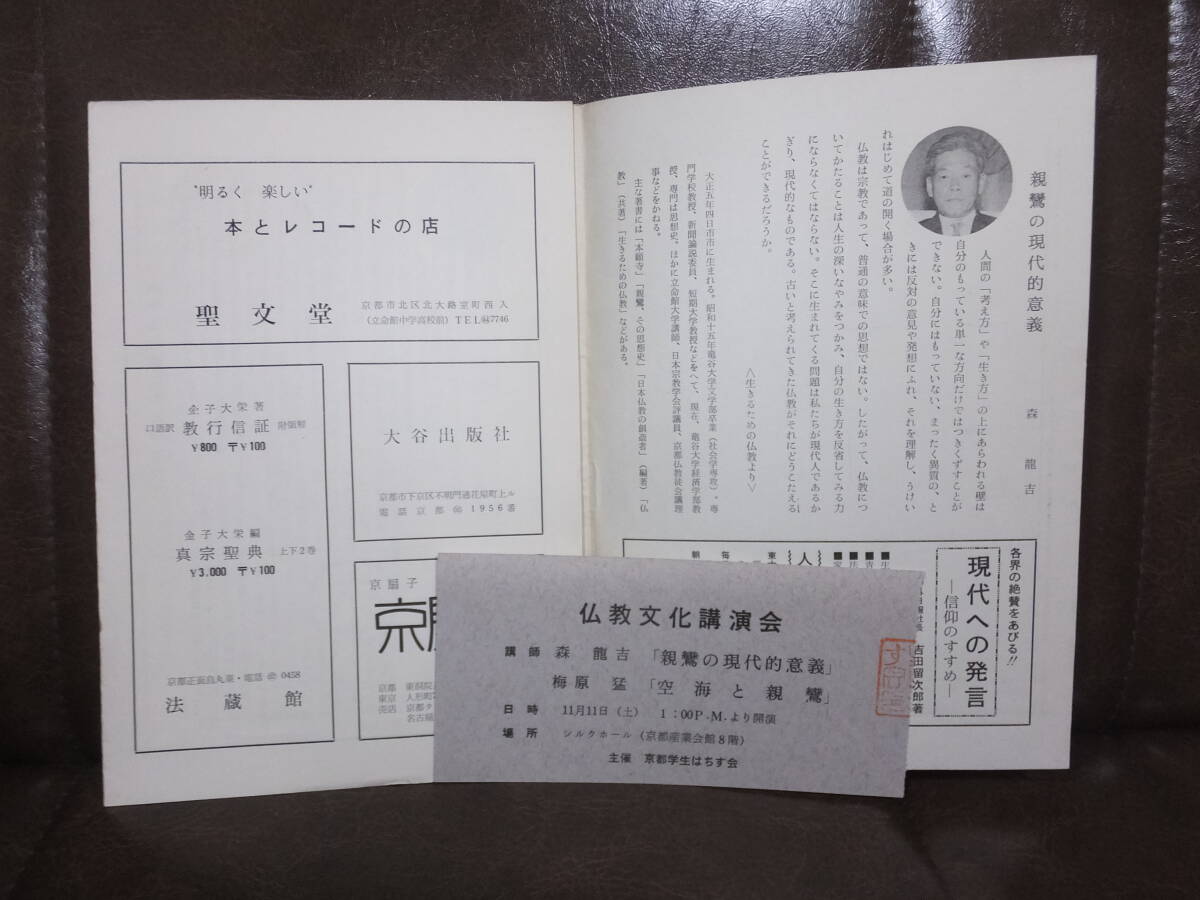 "明るく 楽しい"
本とレコードの店
聖文堂
京都市北区北大路室町西入
(立命館中学高校前) TEL 7746
金子大栄著
口語訳 教行信証 附領解
¥800 〒¥100
金子大栄編
真宗聖典 上下2巻
¥3,000 〒¥100
京都正面烏丸東・電話 0458
法蔵館
大谷出版社
京都市下京区不明門通花屋町上ル
電話京都 1956番
京扇子
京
京都 東洞院
東京 人形町
売店 京都タ
名古屋
親鸞の現代的意義
森 龍吉
人間の「考え方」や「生き方」の上にあらわれる壁は
自分のもっている単一な方向だけではつきくずすことが
できない。自分にはもっていない、まったく異質の、と
きには反対の意見や発想にふれ、それを理解し、うけい
れはじめて道の開く場合が多い。
仏教は宗教であって、普通の意味での思想ではない。したがって、仏教につ
いてかたることは人生の深いなやみをつかみ、自分の生き方を反省してみる力
にならなくてはならない。そこに生まれてくる問題は私たちが現代人であるか
ぎり、現代的なものである。古いと考えられてきた仏教がそれにどうこたえる
ことができるだろうか。
＜生きるための仏教より＞
大正五年四日市市に生まれる。昭和十五年竜谷大学文学部卒業（社会学専攻）。専
門学校教授、新聞論説委員、短期大学教授などをへて、現在、竜谷大学経済学部教
授、専門は思想史。ほかに立命館大学講師、日本宗教学会評議員、京都仏教徒会議理
事などをかねる。
主な著書には「本願寺」「親鸞、その思想史」「日本仏教の創造者」（編著）「仏
教」（共著）「生きるための仏教」などがある。
各界の絶賛をあびる!!
現代への発言
―信仰のすすめ―
吉田留次郎著
仏教文化講演会
講師 森 龍吉 「親鸞の現代的意義」
梅原 猛 「空海と親鸞」
日時 11月11日（土） 1:00P.M.より開演
場所 シルクホール（京都産業会館8階）
主催 京都学生はちす会